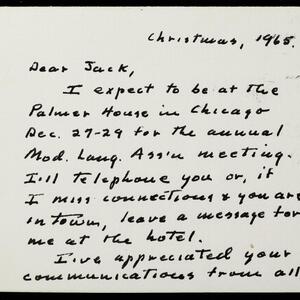 Christmas, 1965.
Dear Jack,
I expect to be at the
Palmer House in Chicago
Dec. 27-29 for the annual
Mod. Lang. Ass'n meeting.
I'll telephone you or, if
I miss connections & you are
in town, leave a message for
me at the hotel.
I've appreciated your
communications from all